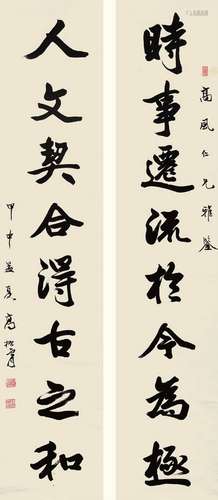 時事遷流於今為極
高風仁兄雅鑒
人文契合得古之和
甲申孟夏高